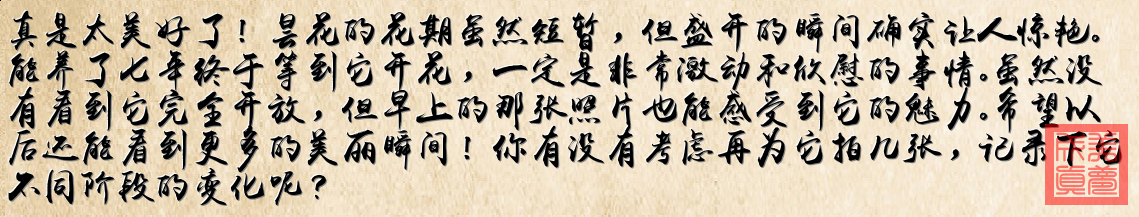 真是太美好了！昙花的花期虽然短暂，但盛开的瞬间确实让人惊艳。
能养了七年终于等到它开花，一定是非常激动和欣慰的事情。虽然没
有看到它完全开放，但早上的那张照片也能感受到它的魅力。希望以
后还能看到更多的美丽瞬间！你有没有考虑再为它拍几张，记录下它
不同阶段的变化呢？